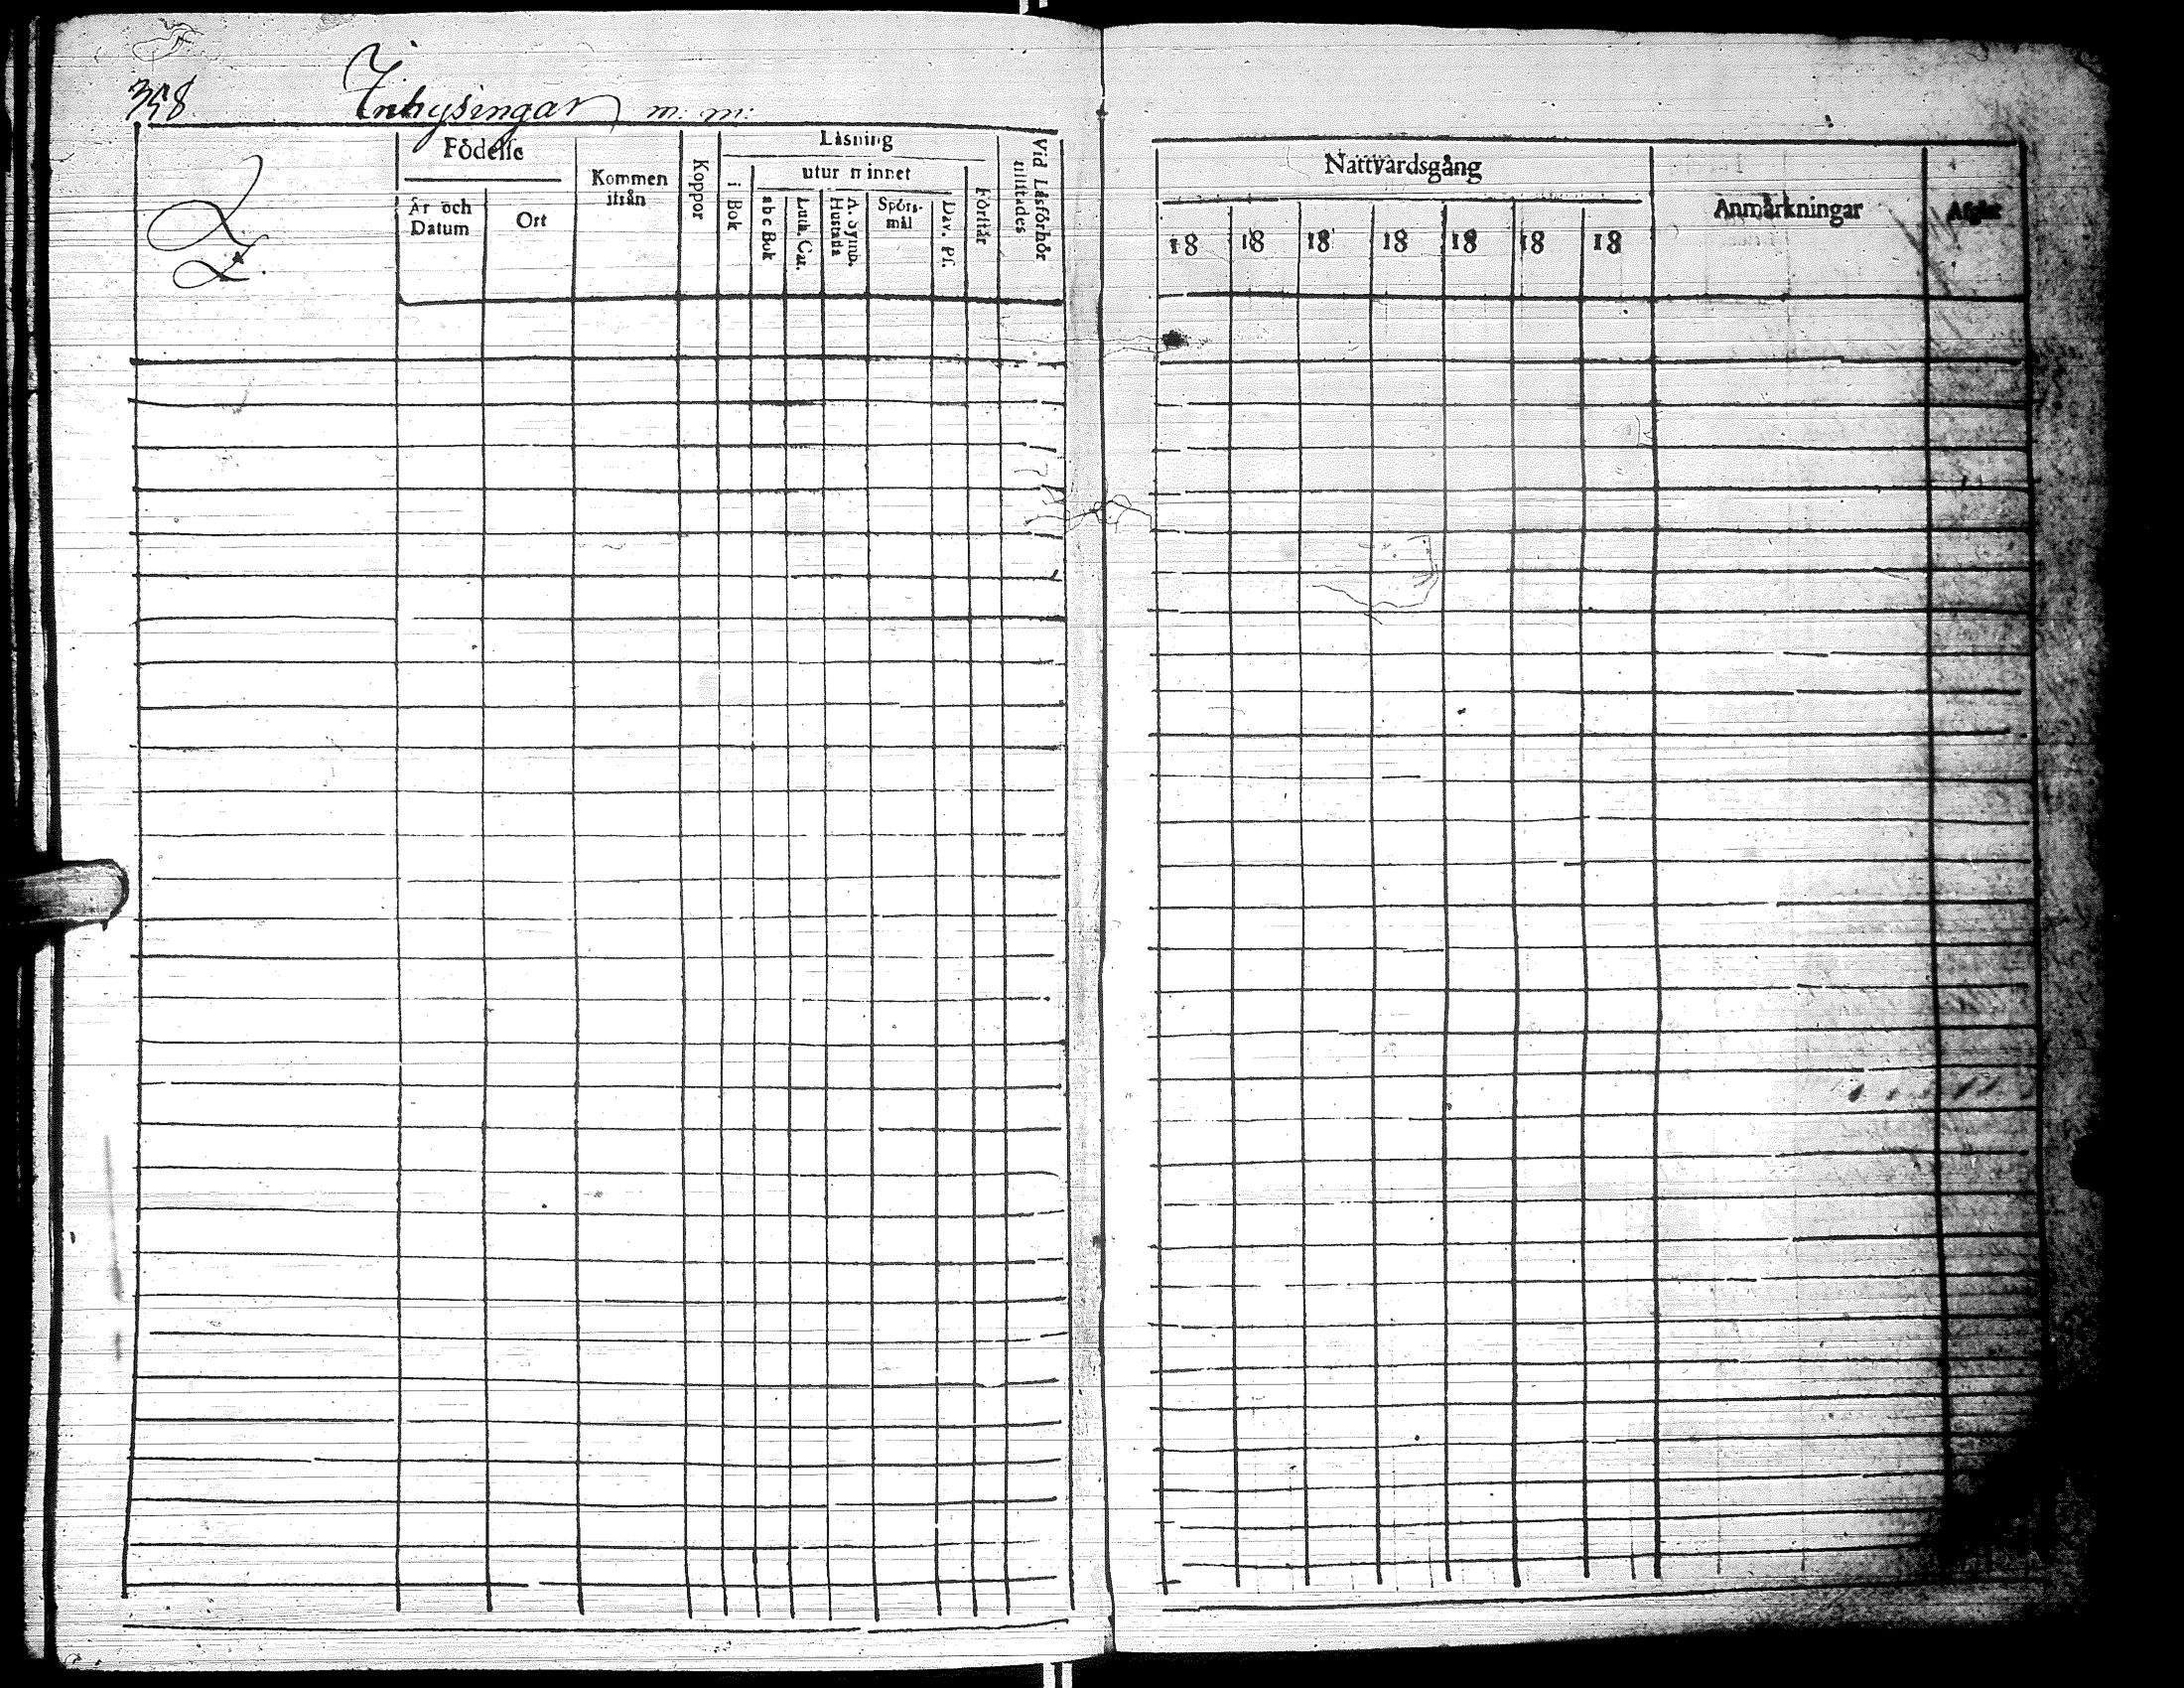 358
Inhysingar m. m.
Födelse
År och Datum
Ort
Kommen ifrån
Koppor
Läsning
i Bok
utur minnet
abc Bok
Luth. Cat.
A. Symb. Hustafla
Spörs-mål
Dav. Ps.
Förstår
Vid Läsförhör tillstädes
Nattvardsgång
18 18 18 18 18 18 18
Anmärkningar